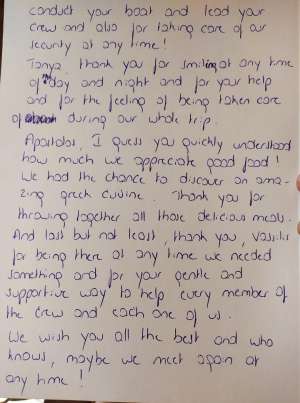 conduct your boat and lead your
crew and also for taking care of our
security at any time!
Tanya, thank you for smiling at any time
of day and night and for your help
and for the feeling of being taken care
of during our whole trip.
Apostolos, I guess you quickly understood
how much we appreciate good food!
We had the chance to discover an ama-
zing greek cuisine. Thank you for
throwing together all those delicious meals.
And last but not least, thank you, Vassilis
for being there at any time we needed
something and for your gentle and
supportive way to help every member of
the crew and each one of us.
We wish you all the best and who
knows, maybe we meet again at
any time!